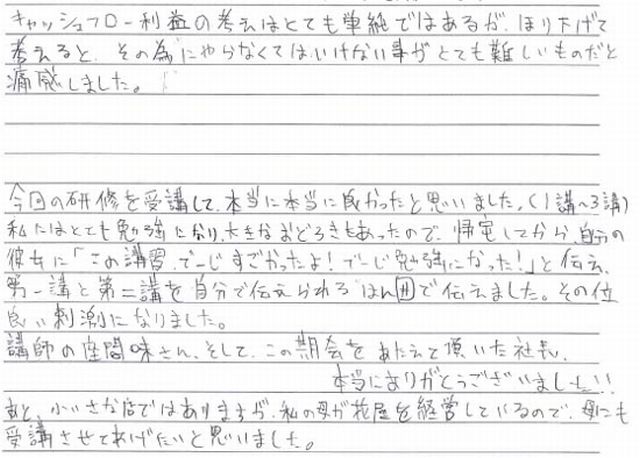 キャッシュフロー利益の考えはとても単純ではあるが、ほり下げて
考えると、その為にやらなくてはいけない事がとても難しいものだと
痛感しました。
今回の研修を受講して、本当に本当に良かったと思いました。(1講~3講)
私にはとても勉強になり、大きなおどろきもあったので、帰宅してから、自分の
彼女に「この講習、でーじすごかったよ!でーじ勉強になった!」と伝え、
第一講と第二講を自分で伝えられるはん囲で伝えました。その位
良い刺激になりました。
講師の座間味さん、そして、この期会をあたえて頂いた社長、
本当にありがとうございました!!
あと、小いさな店ではありますが、私の母が花屋を経営しているので、母にも
受講させてあげたいと思いました。